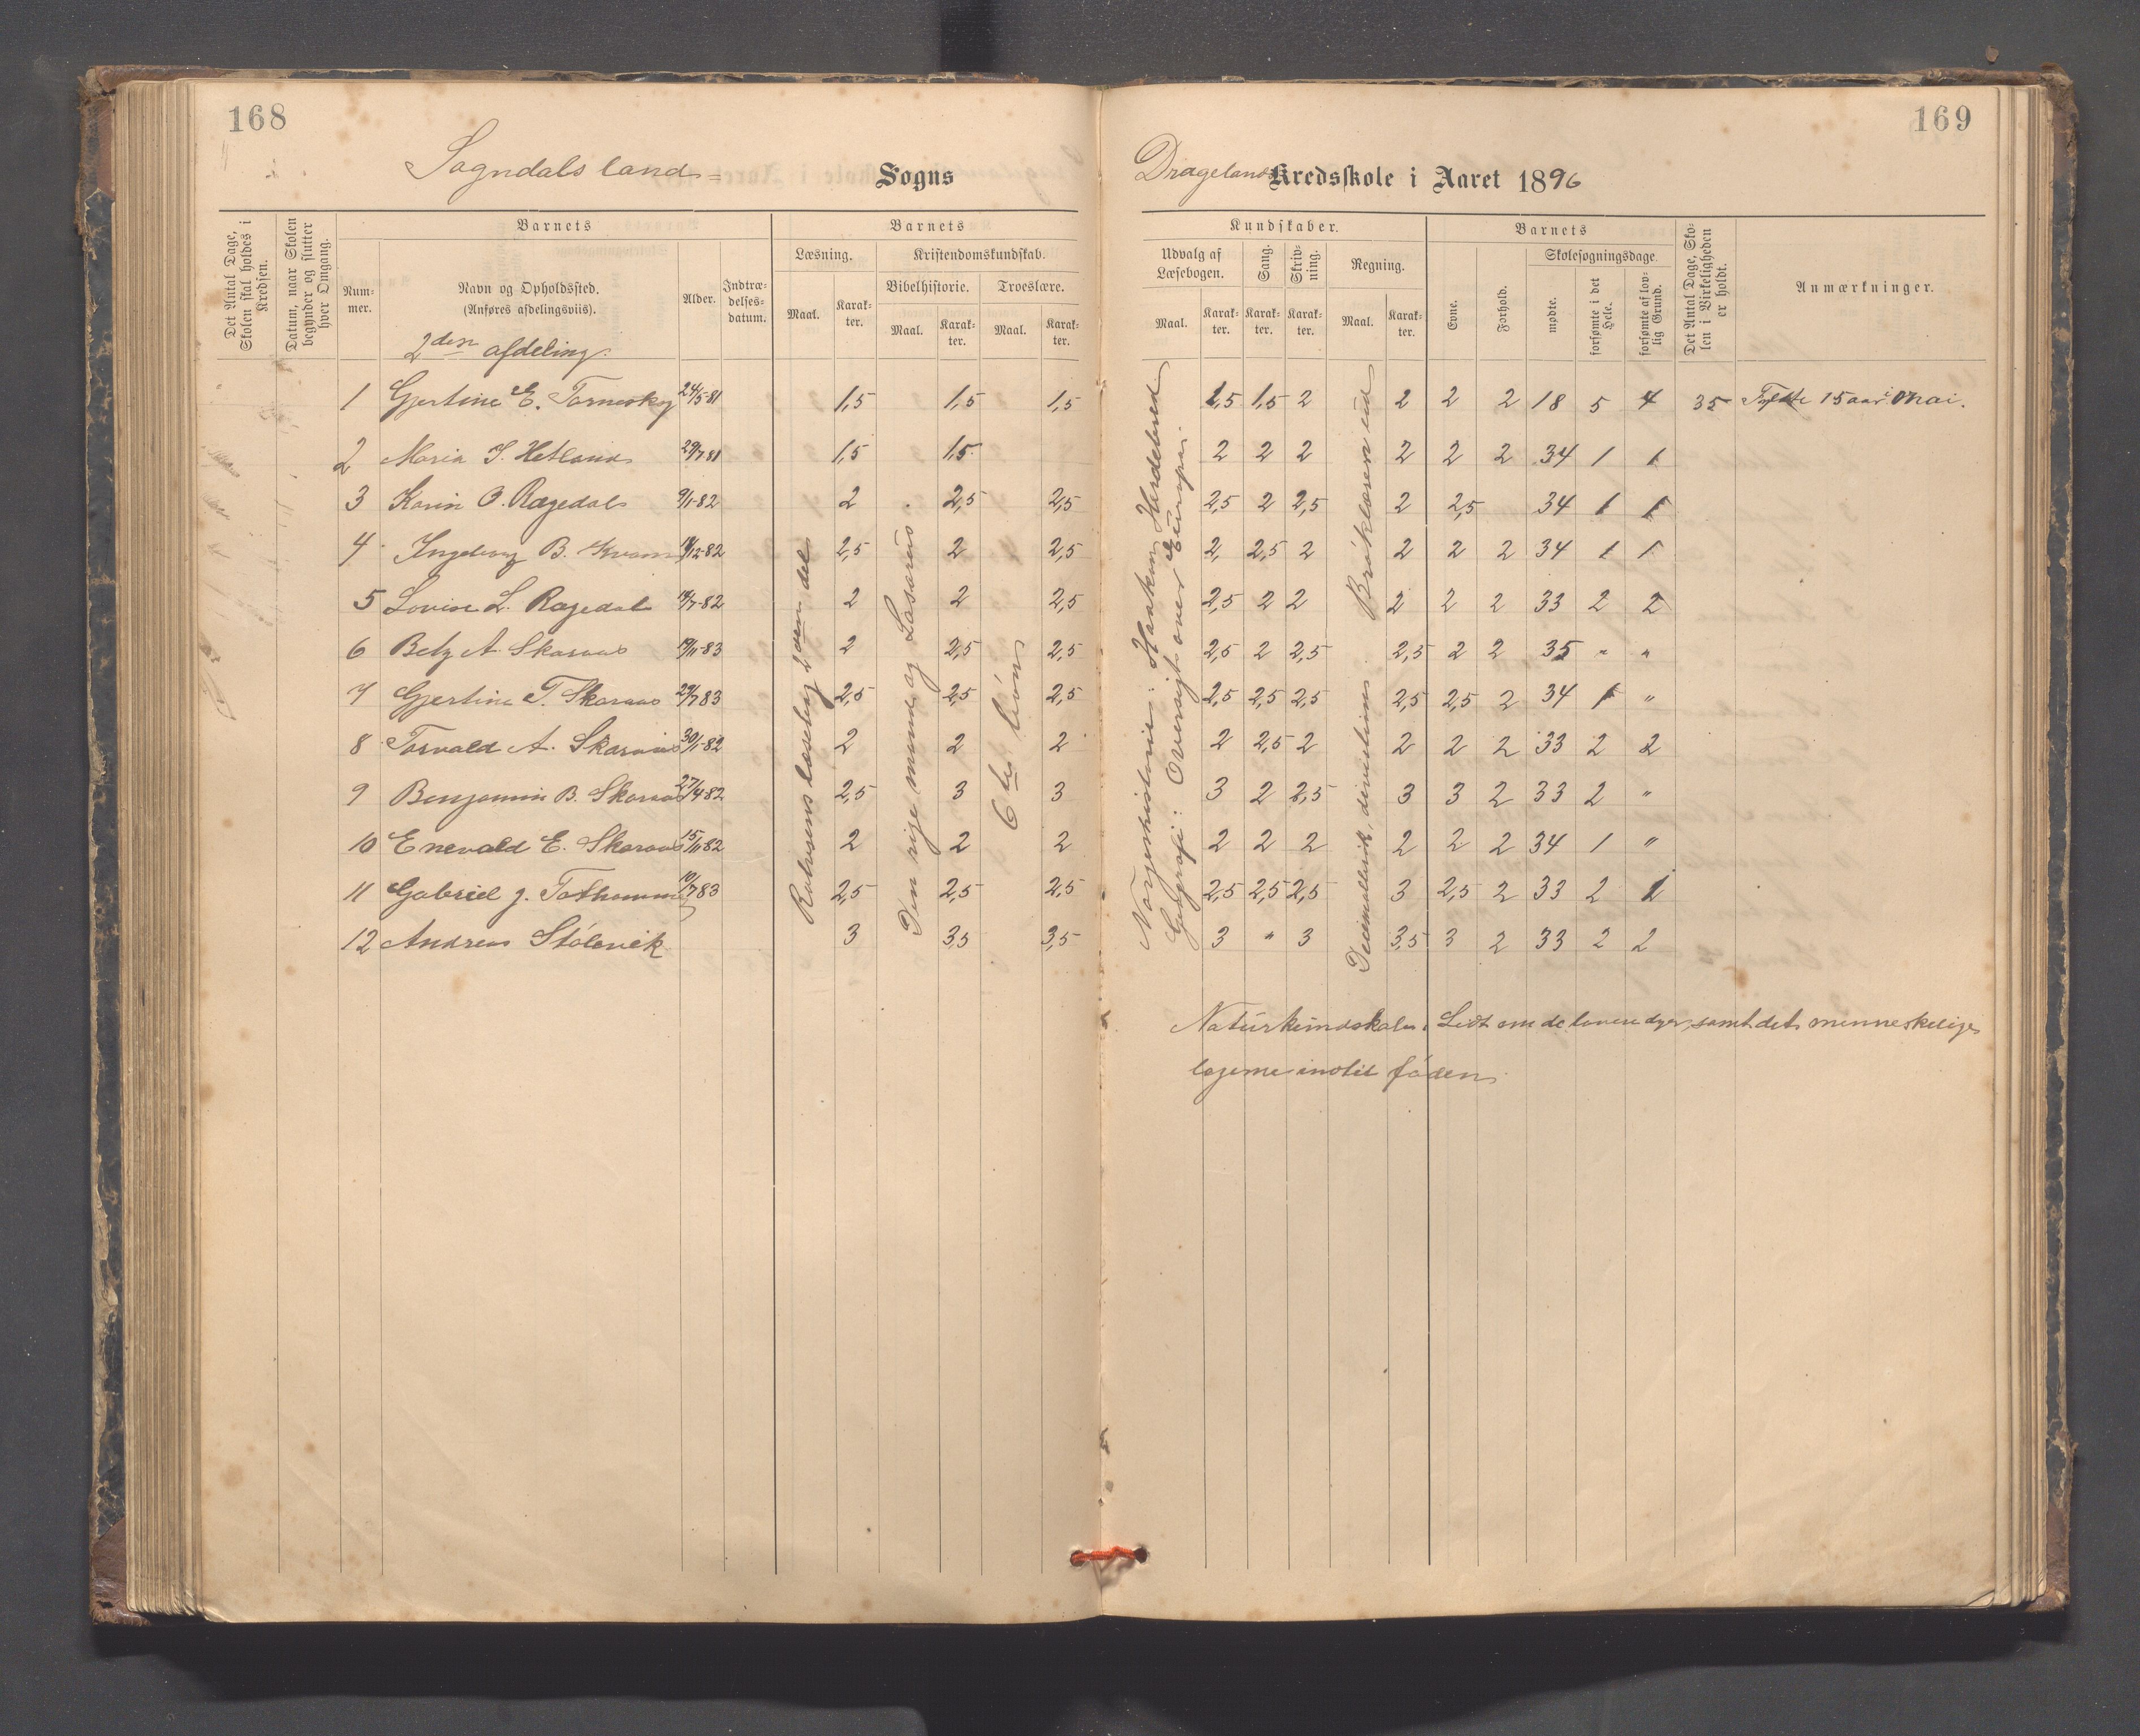 168
Sogndals land= Sogns
Det Antal Dage, Skolen skal holdes i Kredsen.
Datum, naar Skolen begynder og slutter hver Omgang.
Barnets
Num-mer.
Navn og Opholdssted.
(Anføres afdelingsviis).
Alder.
Indtræ-delses-datum.
Barnets
Læsning.
Kristendomskundskab.
Bibelhistorie.
Troeslære.
Maal. Karak-ter. Maal. Karak-ter. Maal. Karak-ter.
2den afdeling.
1 Gjertine E. 24/5-81 1,5 1,5 1,5
2 Maria S. Hetland 29/7 81 1,5 1,5
3 Karin O. Rægedal 9/1-82 2 2,5 2,5
4 Ingeborg B. Kvam /12-82 2,5 2 2,5
5 Lovise L. Rægedal /7-82 2 2 2,5
6 Betzy A. Skaraas /11-83 2 2,5 2,5
7 Gjertine T. Skaraas 29/7 83 2,5 2,5 2,5
8 Torvald A. Skaraas 30/1-82 2 2 2
9 Benjamin B. Skaraas 27/4-82 2,5 3 3
10 Enevald E. Skaraas 15/11 82 2 2 2
11 Gabriel J. 10/7 83 2,5 2,5 2,5
12 Andreas Stölevik 3 3,5 3,5
Rolvsens læsebog 2den del
Den rige mand og Lasarus.
6te bön
169
Dragelands Kredsskole i Aaret 1896
Kundskaber.
Udvalg af Læsebogen.
Sang.
Skriv-ning.
Regning.
Maal. Karak-ter. Karak-ter. Karak-ter. Maal. Karak-ter.
Barnets
Evne.
Forhold.
Skolesøgningsdage.
mødte.
forsømte i det Hele.
forsømte af lov-lig Grund.
Det Antal Dage, Sko-len i Virkeligheden er holdt.
Anmærkninger.
1,5 1,5 2 2 2 2 18 5 4 35 Fyldte 15 aar i Mai.
2 2 2 2 2 2 34 1 1
2,5 2 2,5 2 2,5 34 1 1
2, 2,5 2 2 2 2 34 1 1
2,5 2 2 2 2 2 33 2 2
2,5 2 2,5 2,5 2 2 35 " "
2,5 2,5 2,5 2,5 2,5 2 34 1 "
2 2,5 2 2 2 2 33 2 2
3 2 2,5 3 3 2 33 2 "
2 2 2 2 2 2 34 1 "
2,5 2,5 2,5 3 2,5 2 33 2 1
3 " 3 3,5 3 2 33 2 2
Norgeshistorie: Haakon Herdebred
Geografi: Oversigt over Europa.
Decimalbrök, divisions
Bröklæren ud
Naturkundskab: Lidt om de lavere dyr, samt det menneskelige
legeme indtil föden